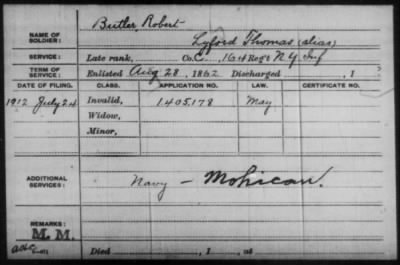 Butler, Robert
NAME OF SOLDIER: Lyford Thomas (alias)
SERVICE: Late rank, Co. C, 164 Reg't N.Y. Inf
TERM OF SERVICE: Enlisted Aug 28, 1862 Discharged , 1
DATE OF FILING. CLASS. APPLICATION NO. LAW. CERTIFICATE NO.
1912 July 24 Invalid, 1.405.178 May
Widow,
Minor,
ADDITIONAL SERVICES: Navy - Mohican.
REMARKS:
M. M.
Died , 1 , at